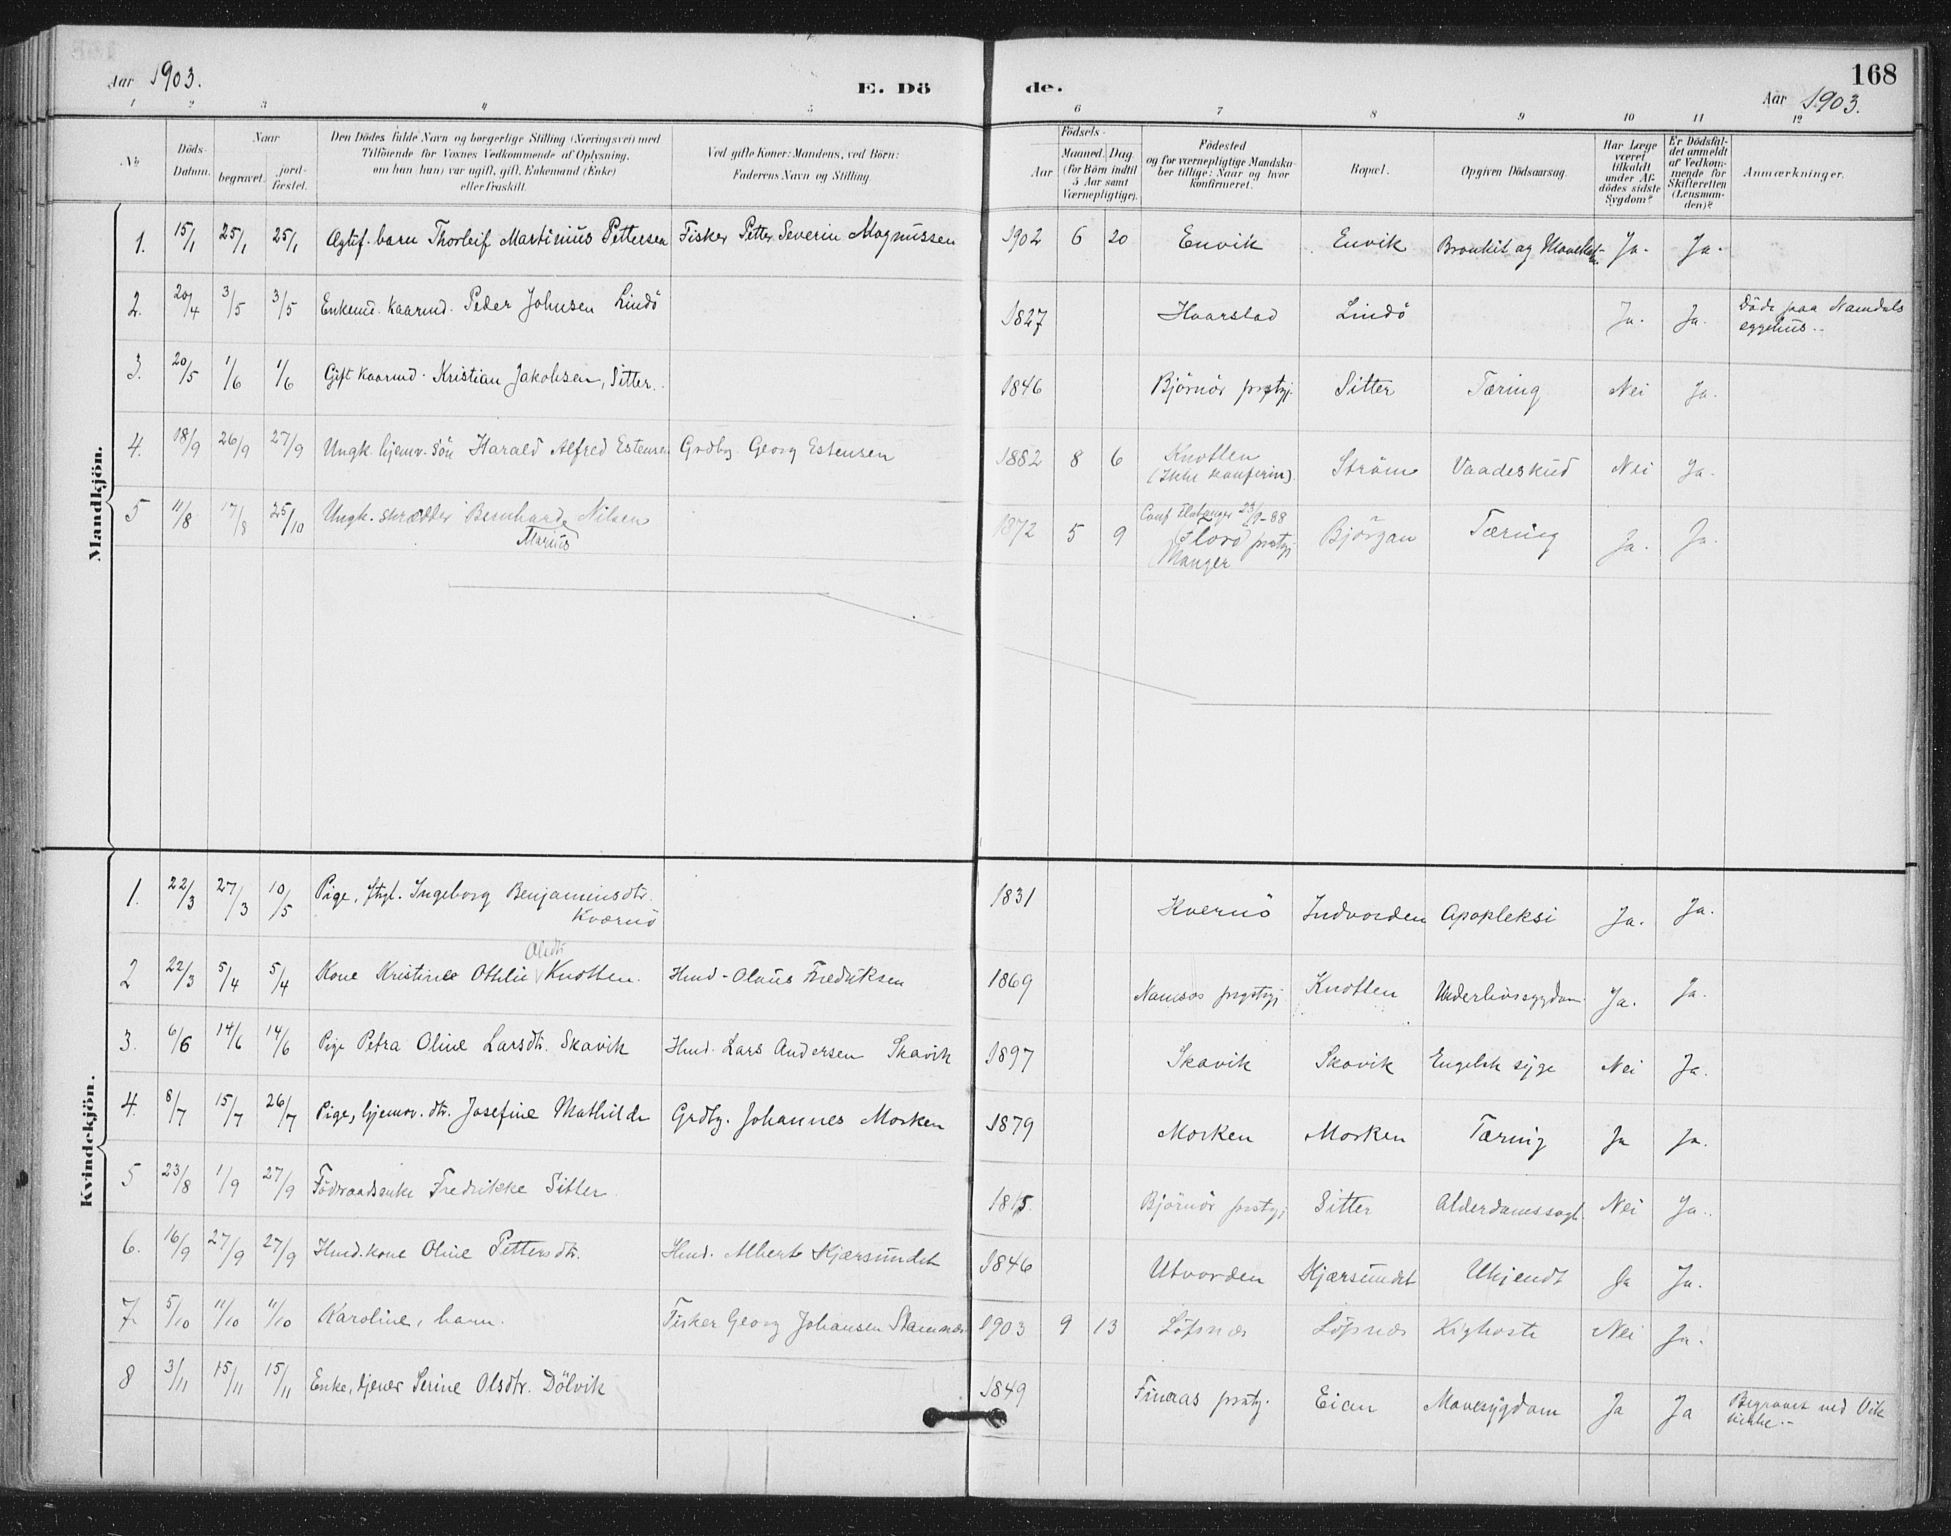 168
Aar 1903.
E. Dö
de.
Aar 1903.
1 2 3 4 5 6 7 8 9 10 11 12
No.
Döds-Datum.
Naar
begravet.
jord-fæstet.
Den Dödes fulde Navn og borgerlige Stilling (Næringsvei) med
Tilföiende for Voxnes Vedkommende af Oplysning,
om han (hun) var ugift, gift, Enkemand (Enke)
eller fraskilt.
Ved gifte Koner: Mandens, ved Börn:
Faderens Navn og Stilling
Födsels-
Aar
Maaned. Dag.
(for Börn indtil
5 Aar samt
Værnepligtige).
Födested
og for værnepligtige Mandska-
ber tillige: Naar og hvor
konfirmeret.
Bopæl.
Opgiven Dödsaarsag.
Har Læge
været
tilkaldt
under Af-
dödes sidste
Sygdom?
Er Dödsfal-
det anmeldt
af Vedkom-
mende for
Skifteretten
(Lensman-
den)?
Anmærkninger.
Mandkjön.
1. 15/1 25/1 25/1 Ægtef. barn Thorleif Martinius Pettersen Fisker Petter Severin Magnussen 1902 6 20 Envik Envik Bronkit og Ja. Ja.
2. 20/4 3/5 3/5 Enkemd. kaarmd. Peder Johnsen Lindö 1827 Haarstad Lindö Ja. Ja. Döde paa Namdals
sygehus..
3. 20/5 1/6 1/6 Gift kaarmd. Kristian Jakobsen, Sitter. 1846 Björnör prstgj. Sitter Tæring Nei Ja.
4. 18/9 26/9 27/9 Ungk. hjemv. sön Harald Alfred Estensen Grdbg. Georg Estensen 1882 8 6 Knotten
(Ikke konfirm). Ström Vaadeskud Nei Ja.
5 11/8 17/8 25/10 Ungk. skrædder Bernhard Nilsen
Marius
1872 5 9 Conf. 23/9-88
Florö prstgj
Manger Björgan Tæring Ja. Ja
Kvindekjön.
1. 22/3 27/3 10/5 Pige, Ingeborg Benjaminsdtr.
Kvernö
1831 Kvernö Indvorden Apopleksi Ja. Ja.
2 22/3 5/4 5/4 Kone Kristine Othlie Knotten. Hmd. Olaus Fredriksen 1869 Namsos prstgj Knotten Underlivssygdom Ja. Ja.
3. 6/6 14/6 14/6 Pige Petra Oline Larsdtr. Skavik Hmd. Lars Andersen Skavik 1897 Skavik Skavik Engelsk syge Nei Ja.
4. 8/7 15/7 26/7 Pige, hjemv. dtr. Josefine Mathilde Grdbg. Johannes Morken 1879 Morken Morken Tæring Ja Ja.
5 23/8 1/9 27/9 Föderaadsenke Fredrikke Sitter. 1815. Björnör prstgj. Sitter Alderdomssvagh. Nei Ja..
6. 16/9 27/9 27/9 Hmd. kone Oline Pettersdtr. Hmd. Albert Kjærsundet 1846 Utvorden Kjærsundet Ukjendt Ja Ja.
7. 5/10 11/10 11/10 Karoline, barn. Fisker Georg Johansen Stamnes 1903 9 13 Löfsnes Löfsnes Kighoste Nei Ja.
8 3/11 15/11 15/11 Enke, tjener Serine Olsdtr. Dölvik 1849 Finaas prstgj. Eian Mavesygdom Ja Ja Begravet ved Vik
kirke..